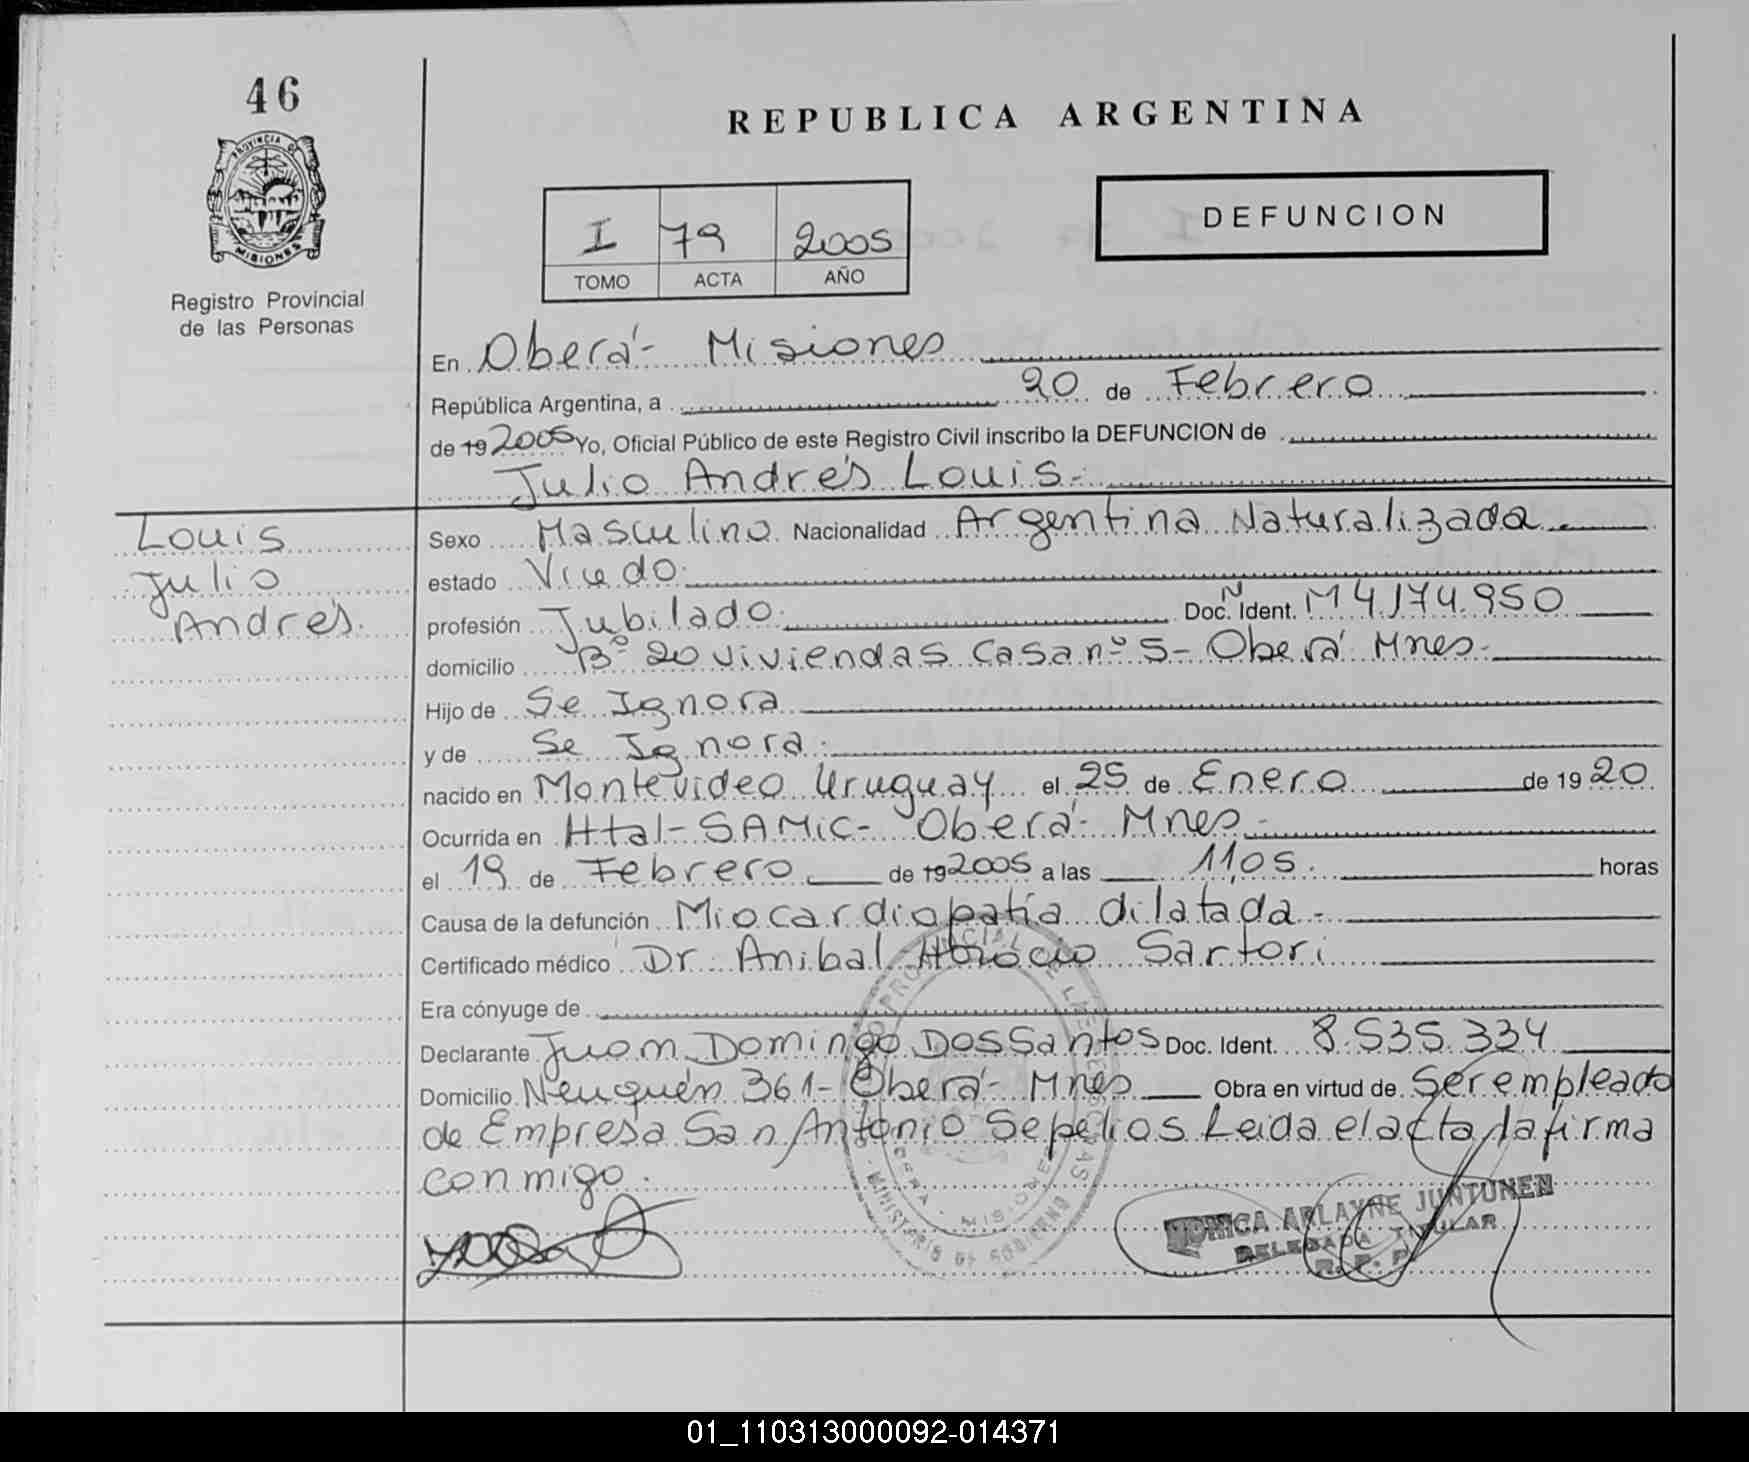 46
PROVINCIA DE
MISIONES
Registro Provincial
de las Personas
REPUBLICA ARGENTINA
I 79 2005
TOMO ACTA AÑO
DEFUNCION
En Oberá- Misiones
República Argentina, a 20 de Febrero
de 19 2005 Yo, Oficial Público de este Registro Civil inscribo la DEFUNCION de
Julio Andrés Louis.-
Louis
Julio
Andrés.
Sexo Masculino Nacionalidad Argentina Naturalizada.
estado Viudo.
profesión Jubilado. Doc. N Ident. M 4.174.950
domicilio Bº 20 viviendas Casa nº 5- Oberá Mnes.
Hijo de Se Ignora
y de Se Ignora.
nacido en Montevideo Uruguay el 25 de Enero de 19 20
Ocurrida en Htal- SAMIC- Oberá- Mnes.-
el 19 de Febrero de 19 2005 a las 11,05. horas
Causa de la defunción Miocardiopatía dilatada.-
Certificado médico Dr. Anibal Horocio Sartori
Era cónyuge de
Declarante Juan Domingo Dos Santos Doc. Ident. 8.535.334
Domicilio Neuquén 361- Oberá- Mnes Obra en virtud de Ser empleado
de Empresa San Antonio Sepelios Leida el acta la firma
conmigo.
MINISTERIO DE GOBIERNO
MONICA ARLAYNE JUNTUNEN
DELEGADA TITULAR
R. P. P.
01_110313000092-014371